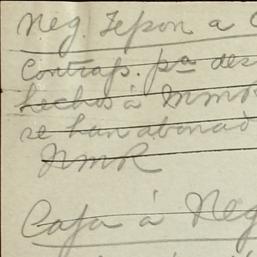 Neg. Tepon a C
Contrap. pa des
hechos à MmR
se han abonad
NmR
Caja à Neg